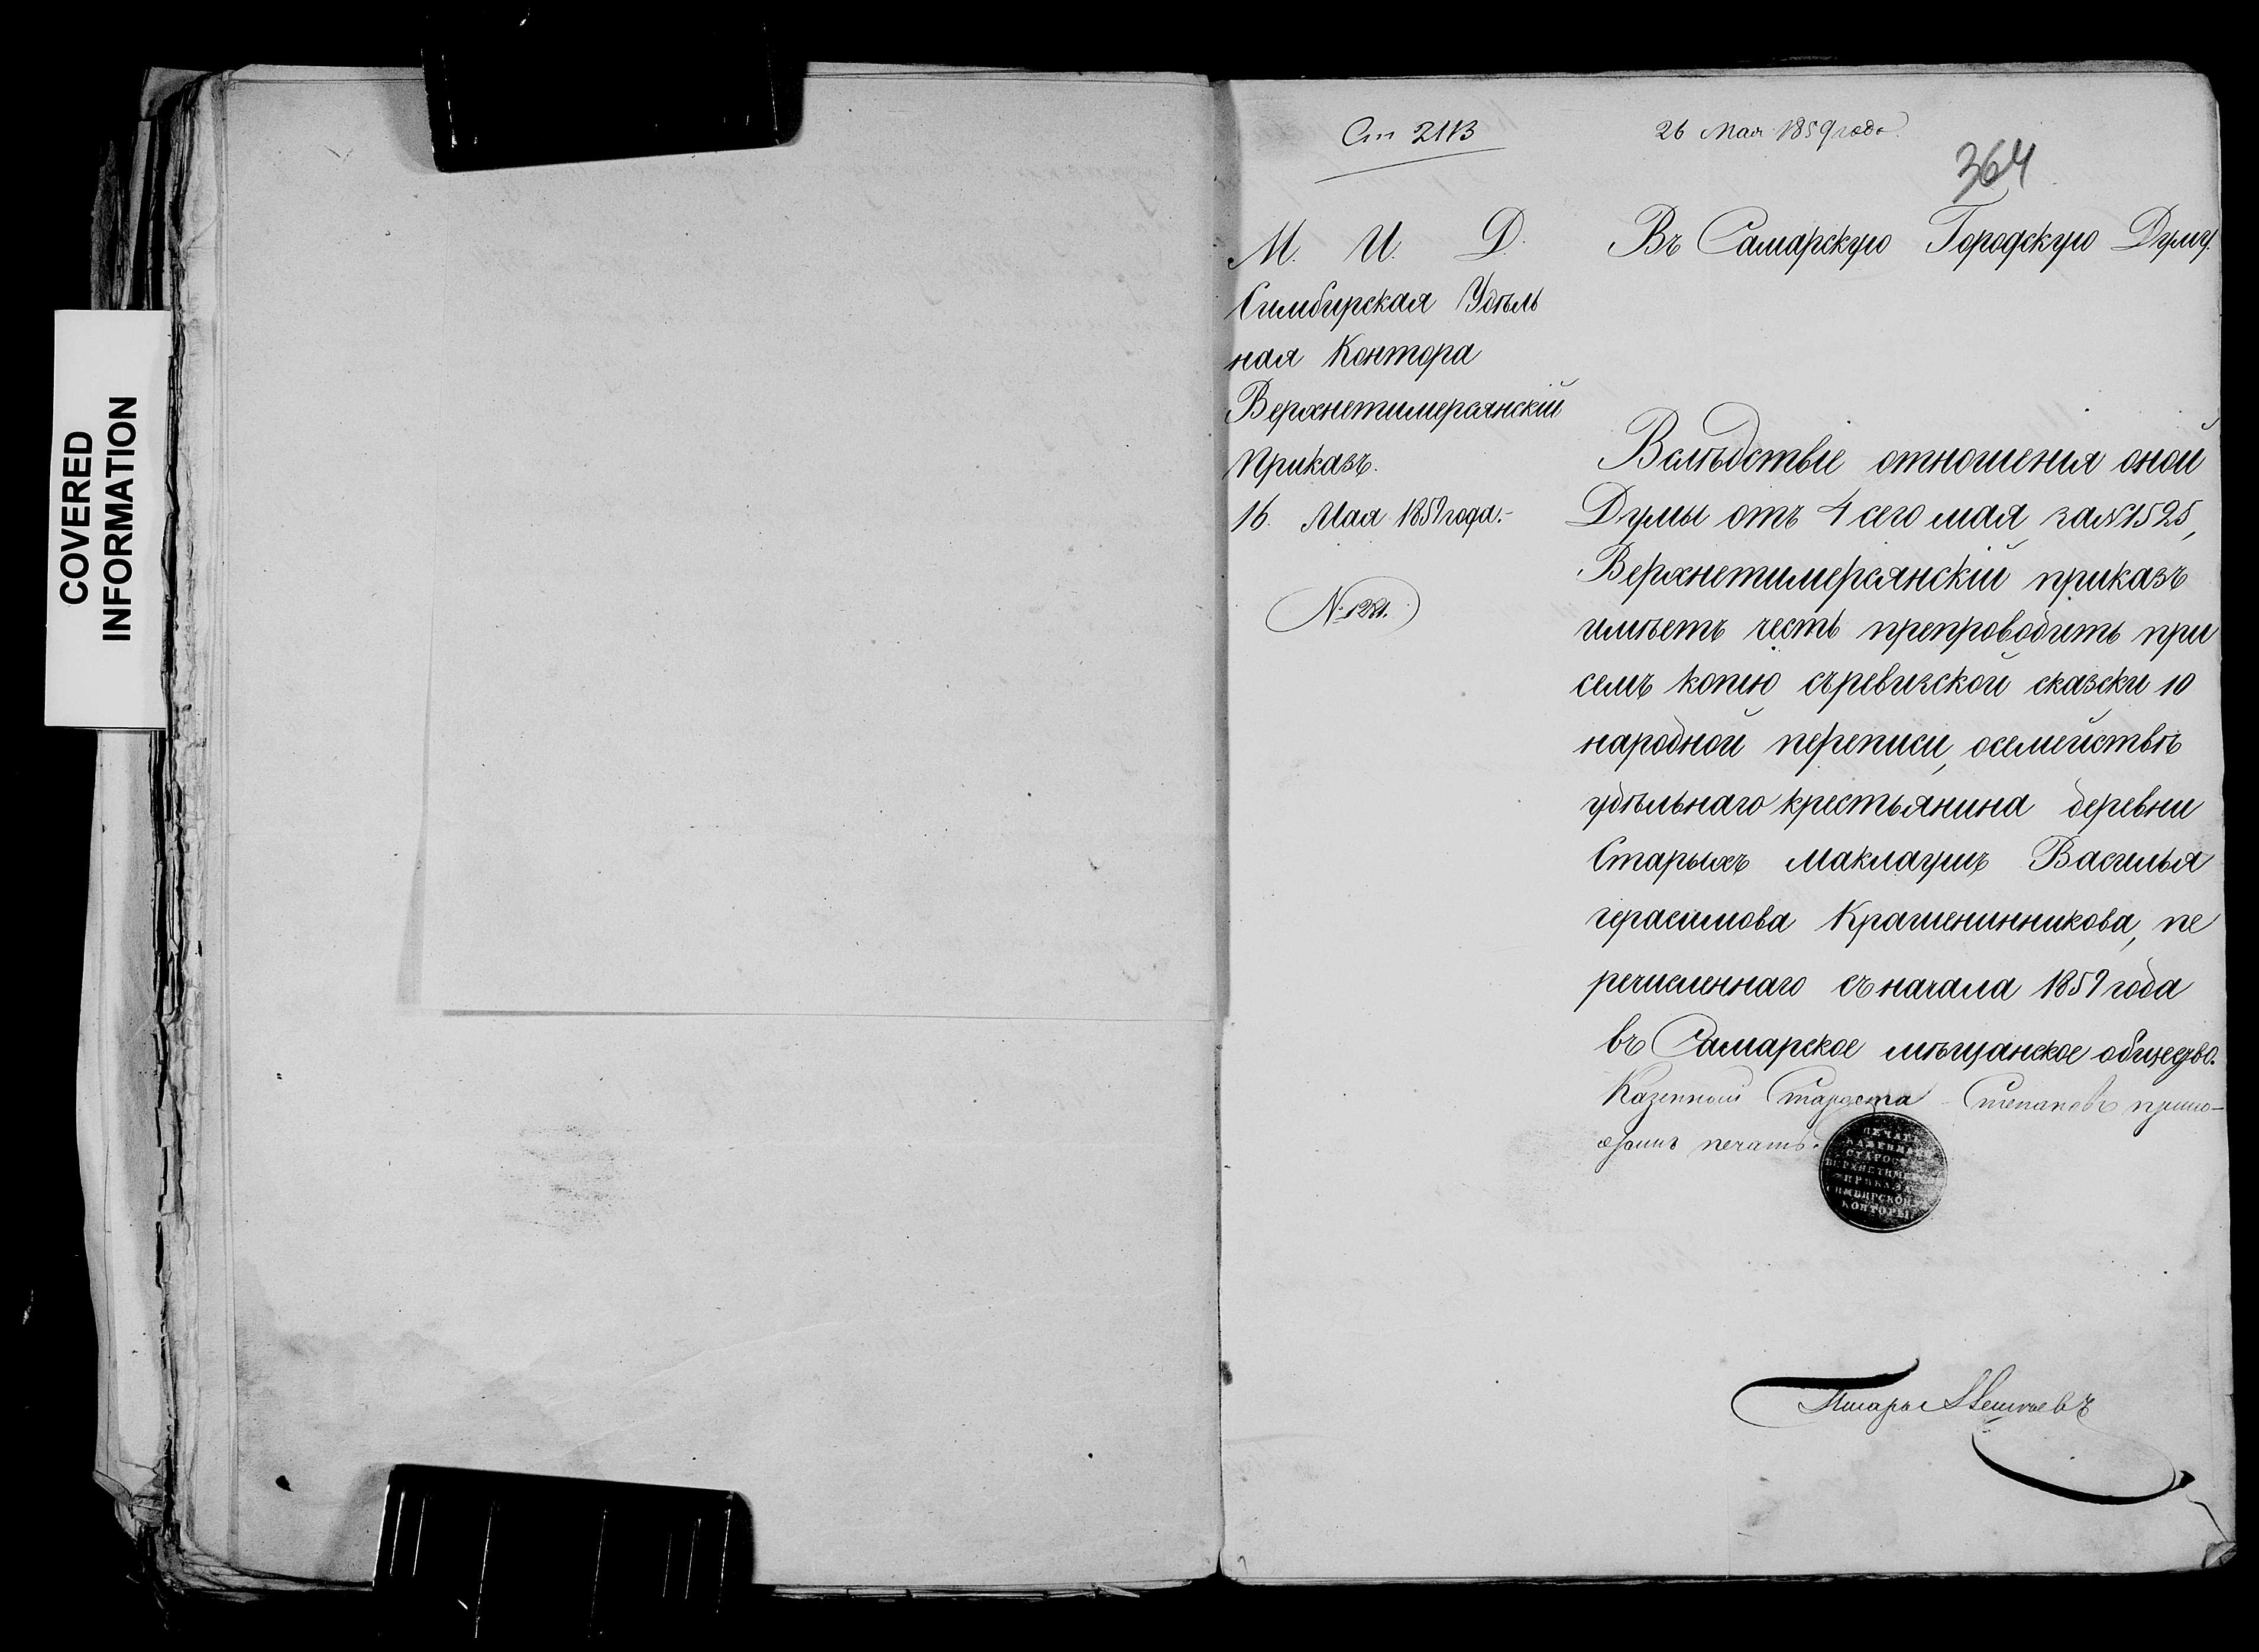 COVERED
INFORMATION
Ст 2113
26 Мая 1859 года.
364
М. И. Д.
Симбирская Удѣль
ная Контора
Верхнетимерсянскій
Приказъ.
16. Мая 1859 года.-
Въ Самарскую Городскую Думу.
Вслѣдствіе отношенія оной
Думы отъ 4 сего мая, за № 1525,
Верхнетимерсянскій приказъ
имѣетъ честь препроводить при
семъ копію съ ревизской сказки 10
народной переписи, о семействѣ
удѣльнаго крестьянина деревни
Старыхъ Маклаушъ Василья
герасимова Крашенинникова, пе
речисленнаго съ начала 1859 года
въ Самарское мѣщанское общество.
Казенный Староста Степановъ прило-
жилъ печать.
ПЕЧАТЬ
КАЗЕННАГО
СТАРОСТЫ
ВЕРХНЕТИМ
ПРИКАЗА
СИМБИРСКОЙ
КОНТОРЫ
Писарь